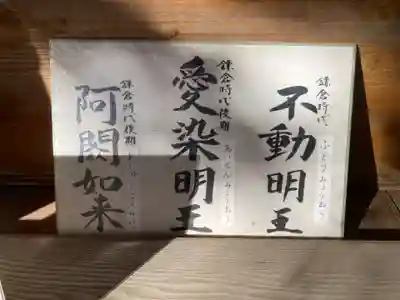 鎌倉時代
不動明王
ふどうみょうおう
鎌倉時代後期
愛染明王
あいぜんみょうおう
鎌倉時代後期
阿閦如来